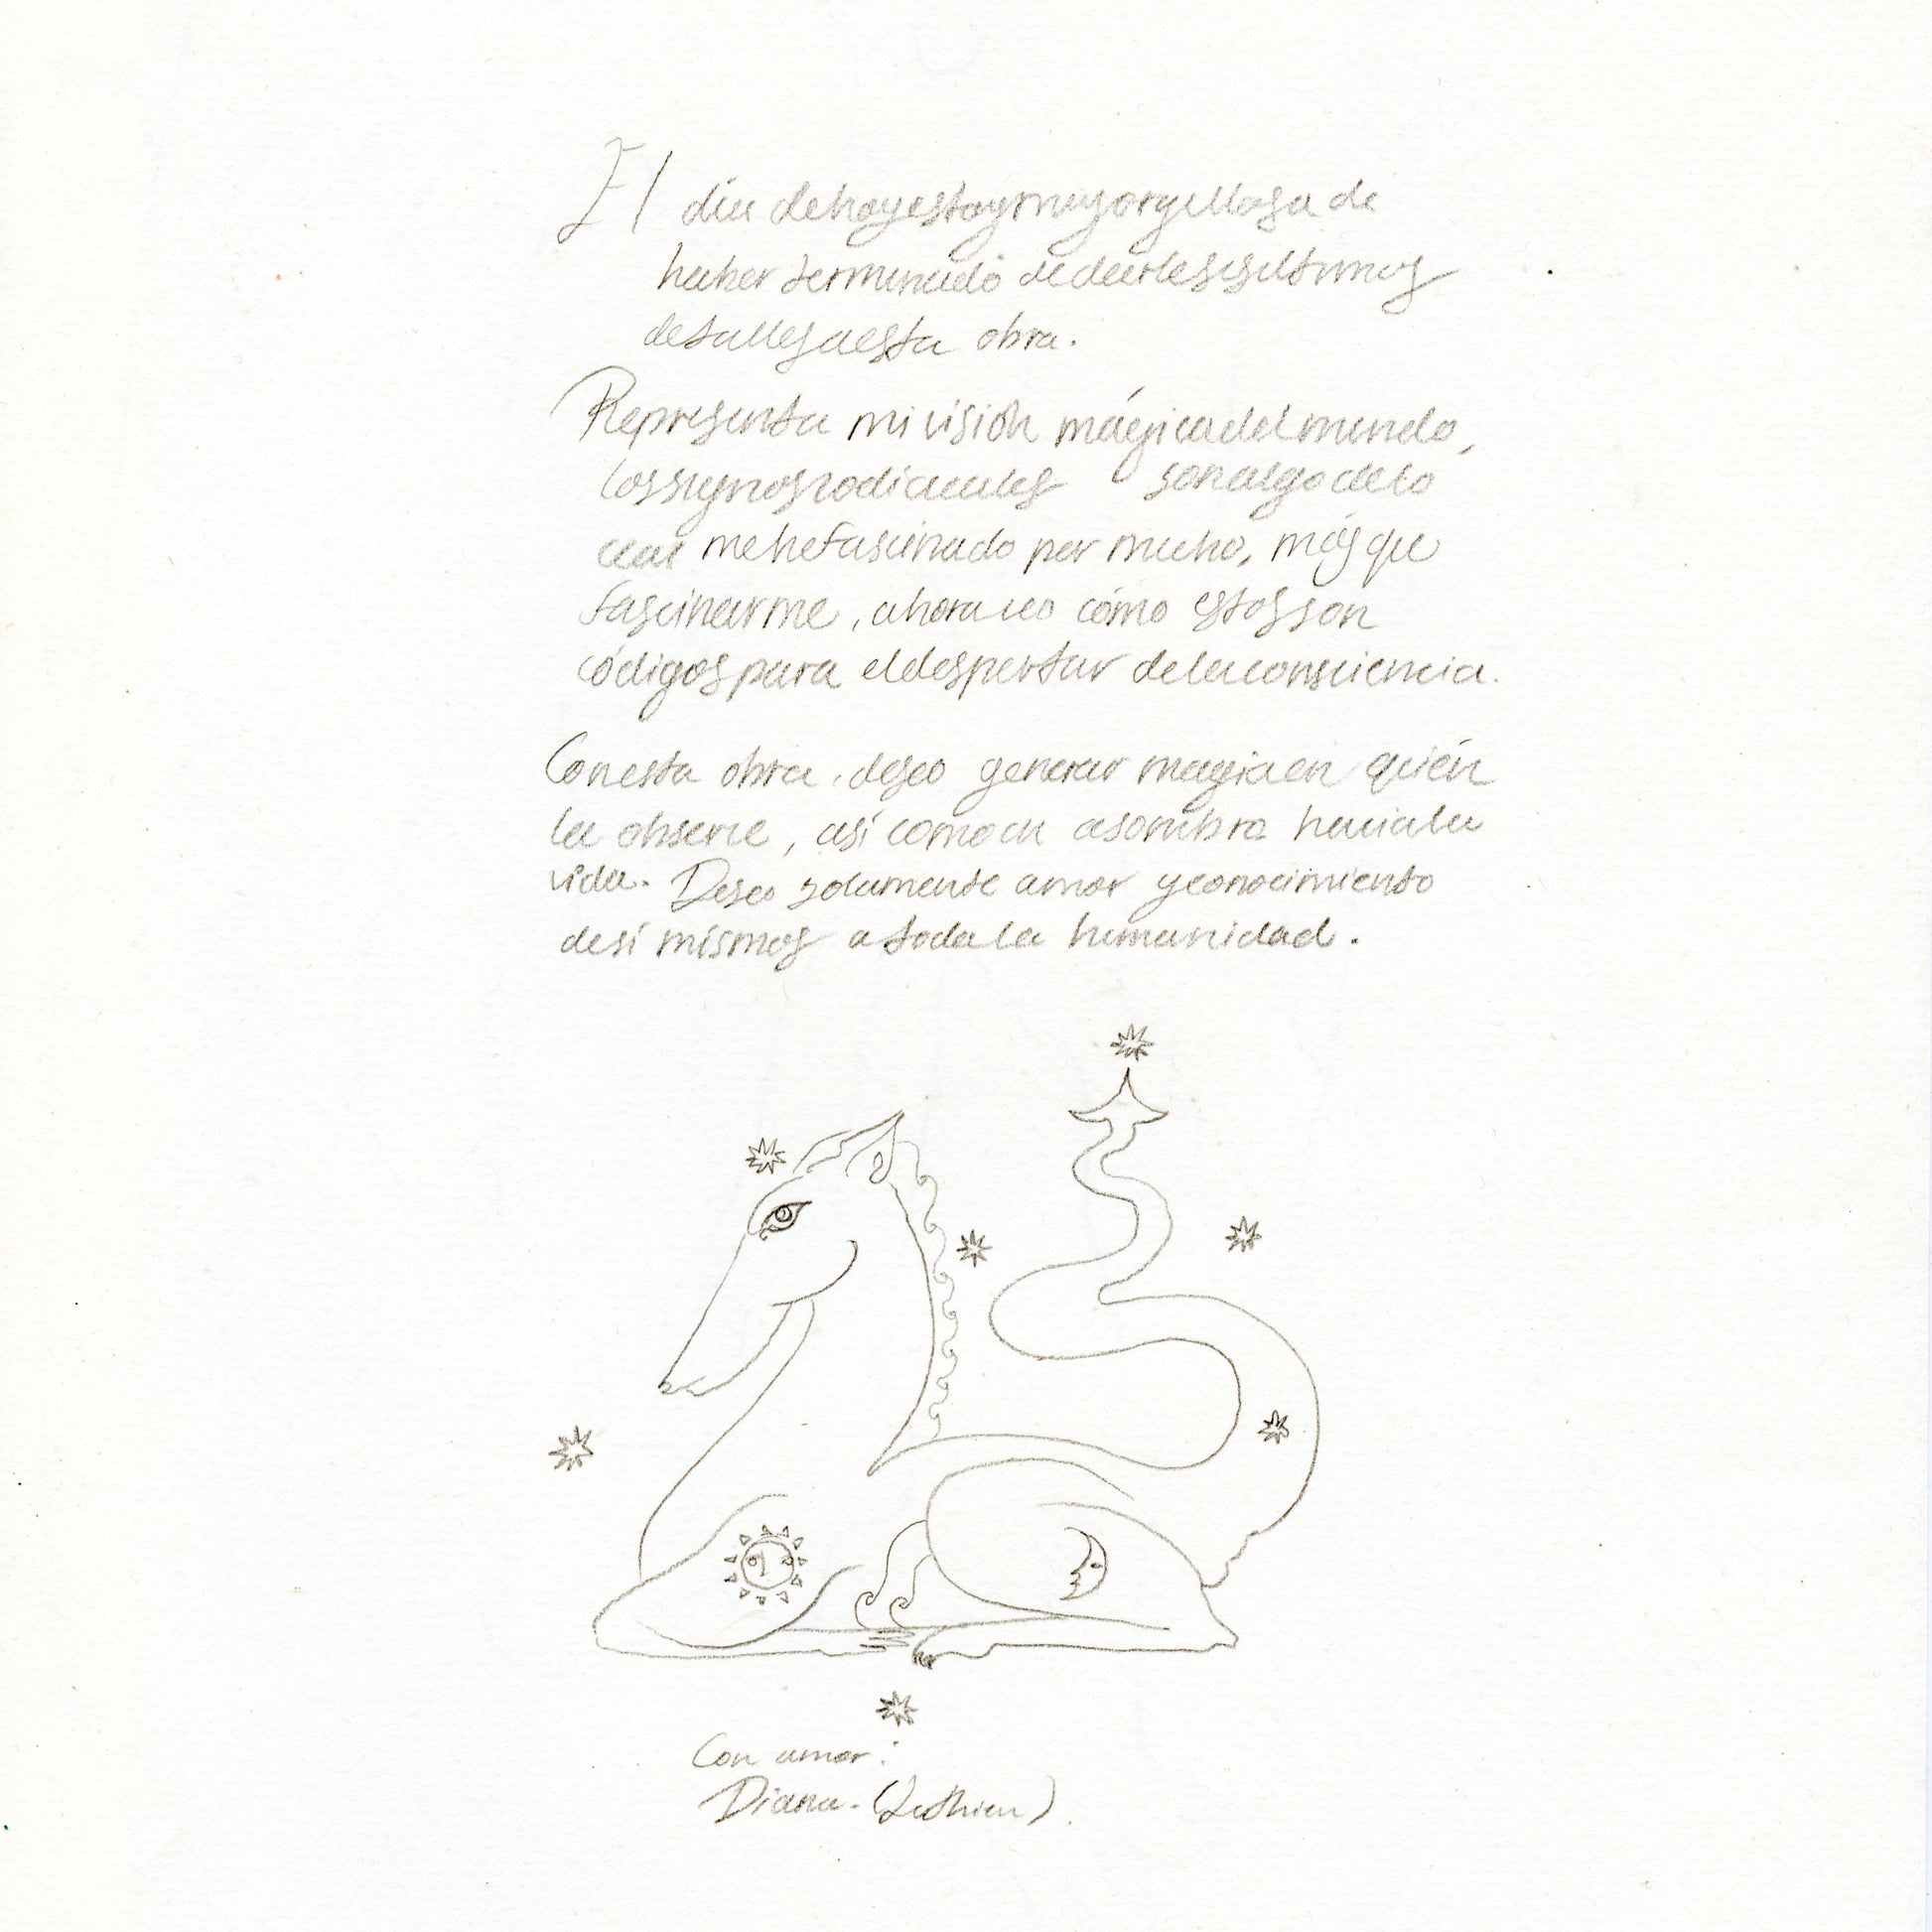 El día de hoy estoy muy orgullosa de
haber terminado de darles sus últimos
detalles a esta obra.
Representa mi visión mágica del mundo,
los signos zodiacales son algo de lo
cual me he fascinado por mucho, más que
fascinarme, ahora veo cómo estos son
códigos para el despertar de la consciencia.
Con esta obra, deseo generar magia en quién
la observe, así como un asombro hacia la
vida. Deseo solamente amor y conocimiento
de sí mismos a toda la humanidad.
Con amor:
Diana. (Luthien).